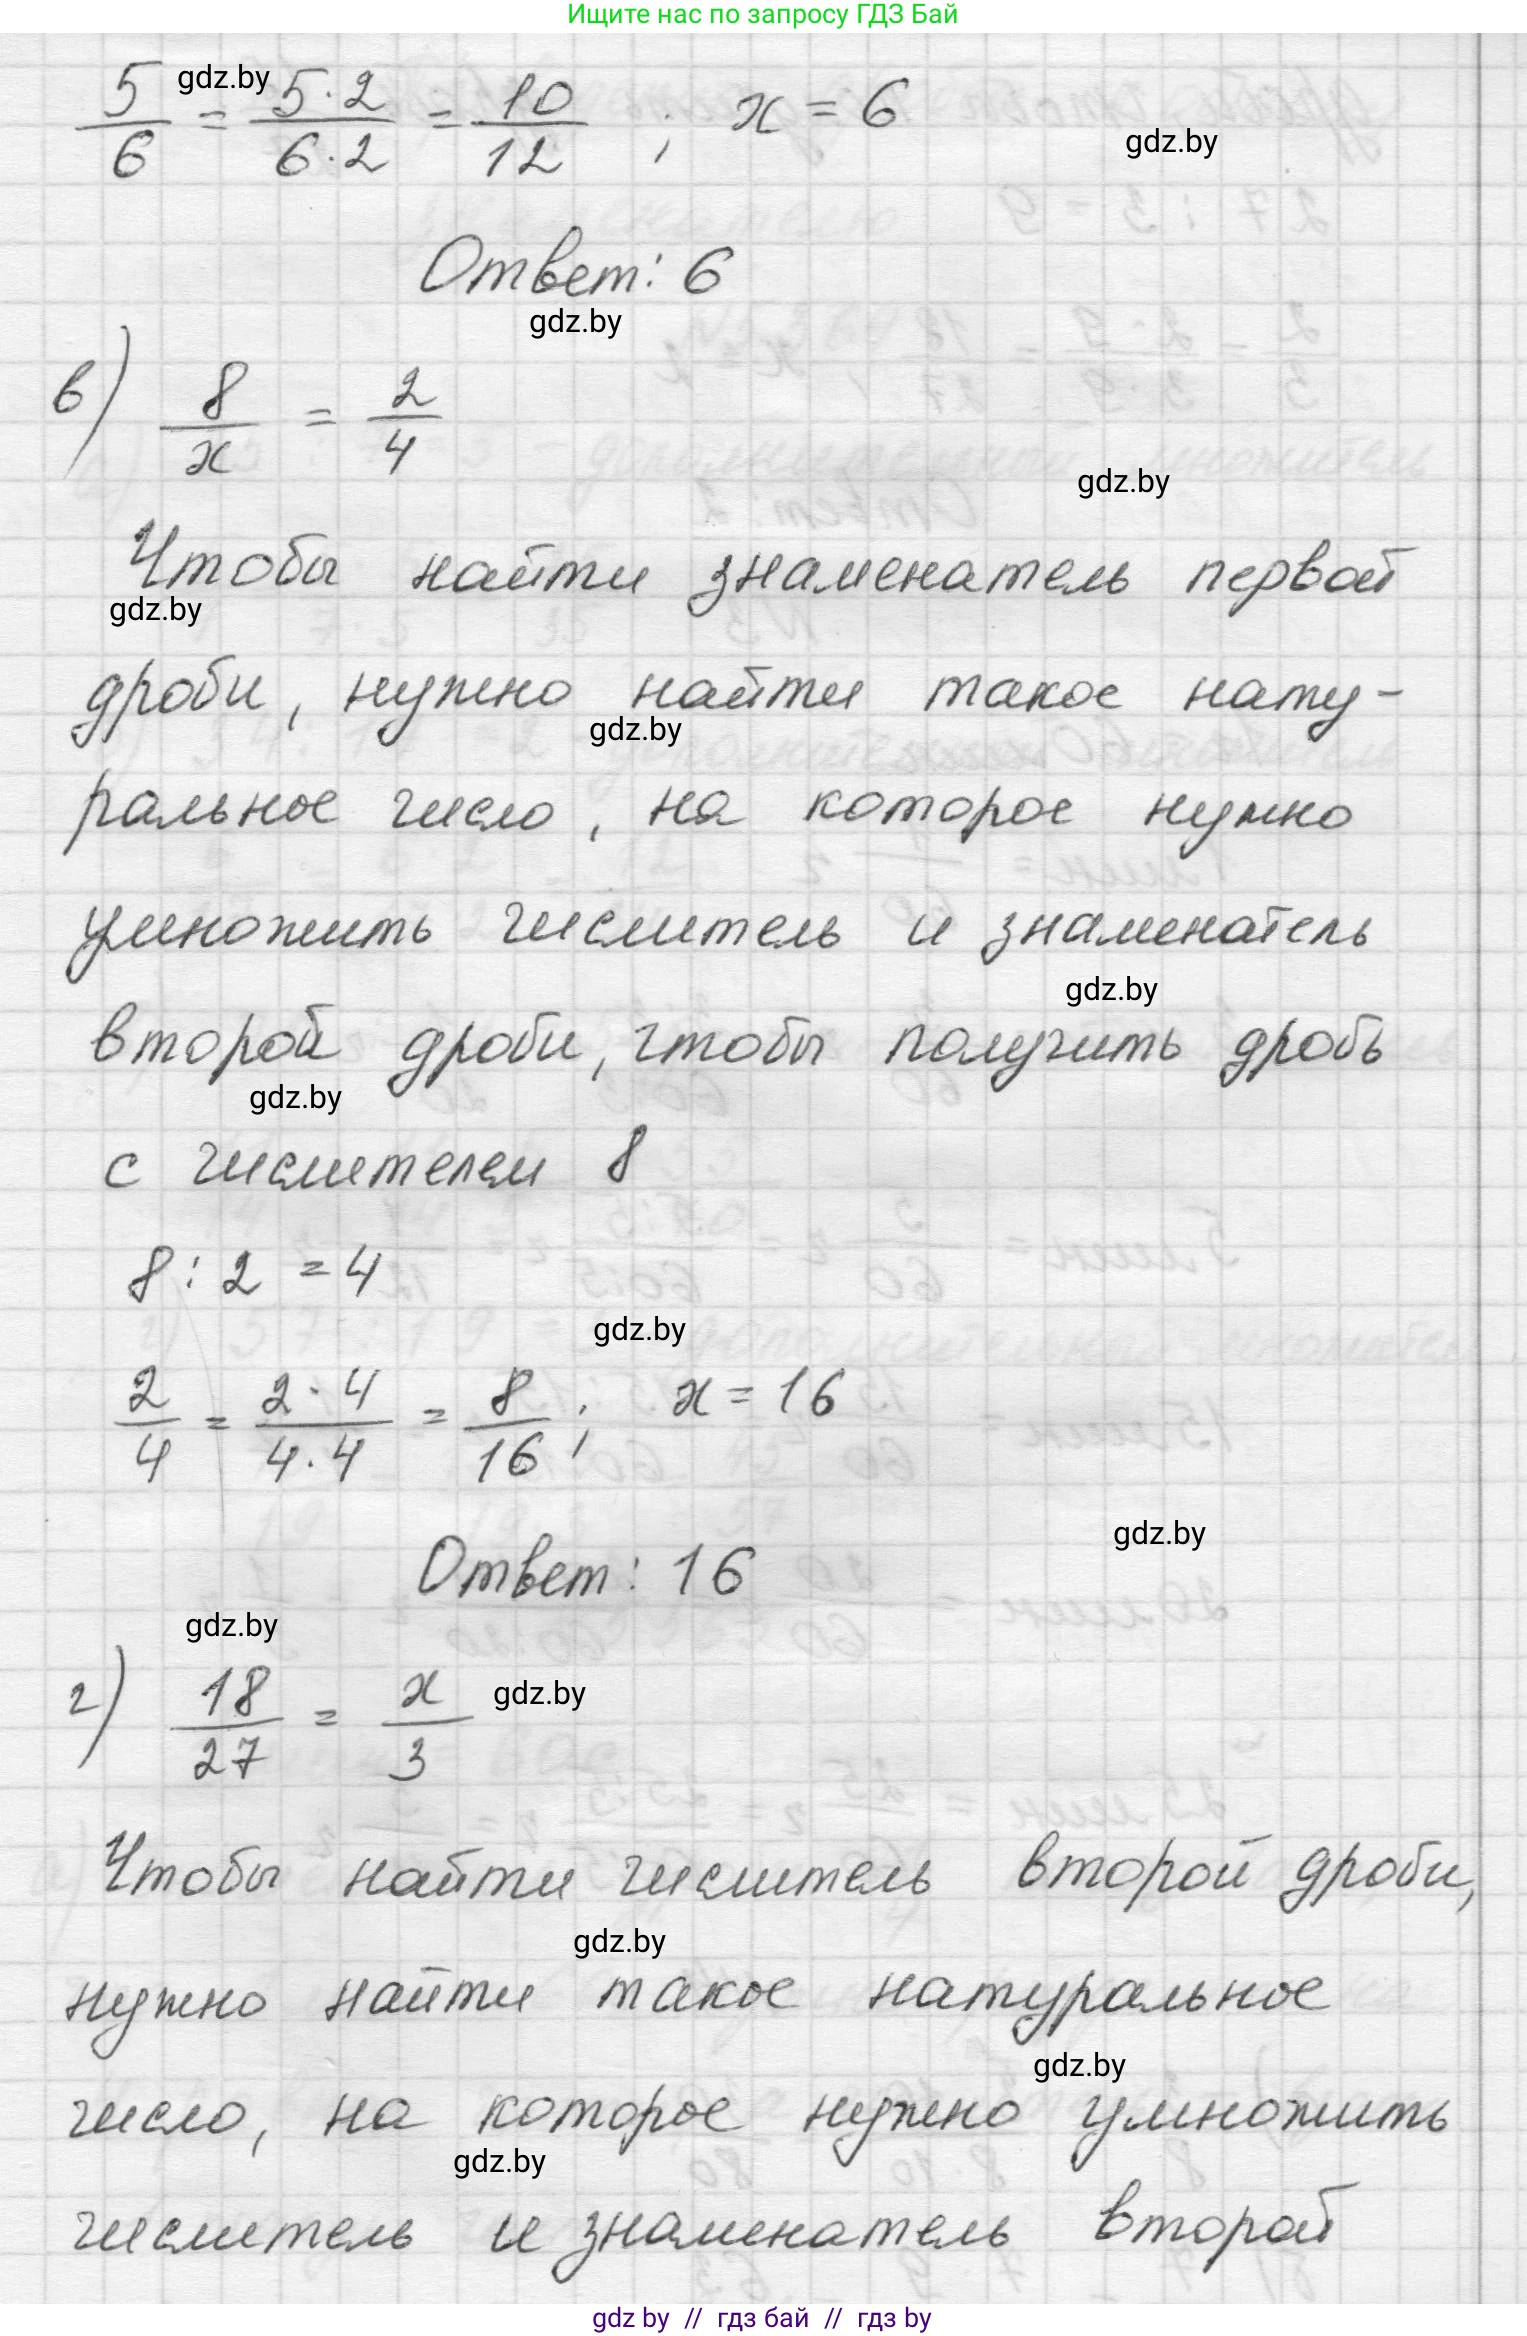 Ищите нас по запросу ГДЗ Бай
5/6 = 5·2/6·2 = 10/12 ; x = 6
gdz.by
gdz.by
Ответ: 6
gdz.by
в) 8/x = 2/4
gdz.by
Чтобы найти знаменатель первой
gdz.by
дроби, нужно найти такое нату-
gdz.by
ральное число, на которое нужно
умножить числитель и знаменатель
gdz.by
второй дроби, чтобы получить дробь
gdz.by
с числителем 8
8 : 2 = 4
gdz.by
2/4 = 2·4/4·4 = 8/16 ; x = 16
gdz.by
Ответ: 16
gdz.by
г) 18/27 = x/3
gdz.by
Чтобы найти числитель второй дроби,
gdz.by
нужно найти такое натуральное
gdz.by
число, на которое нужно умножить
gdz.by
числитель и знаменатель второй
gdz by // гдз бай // гдз by